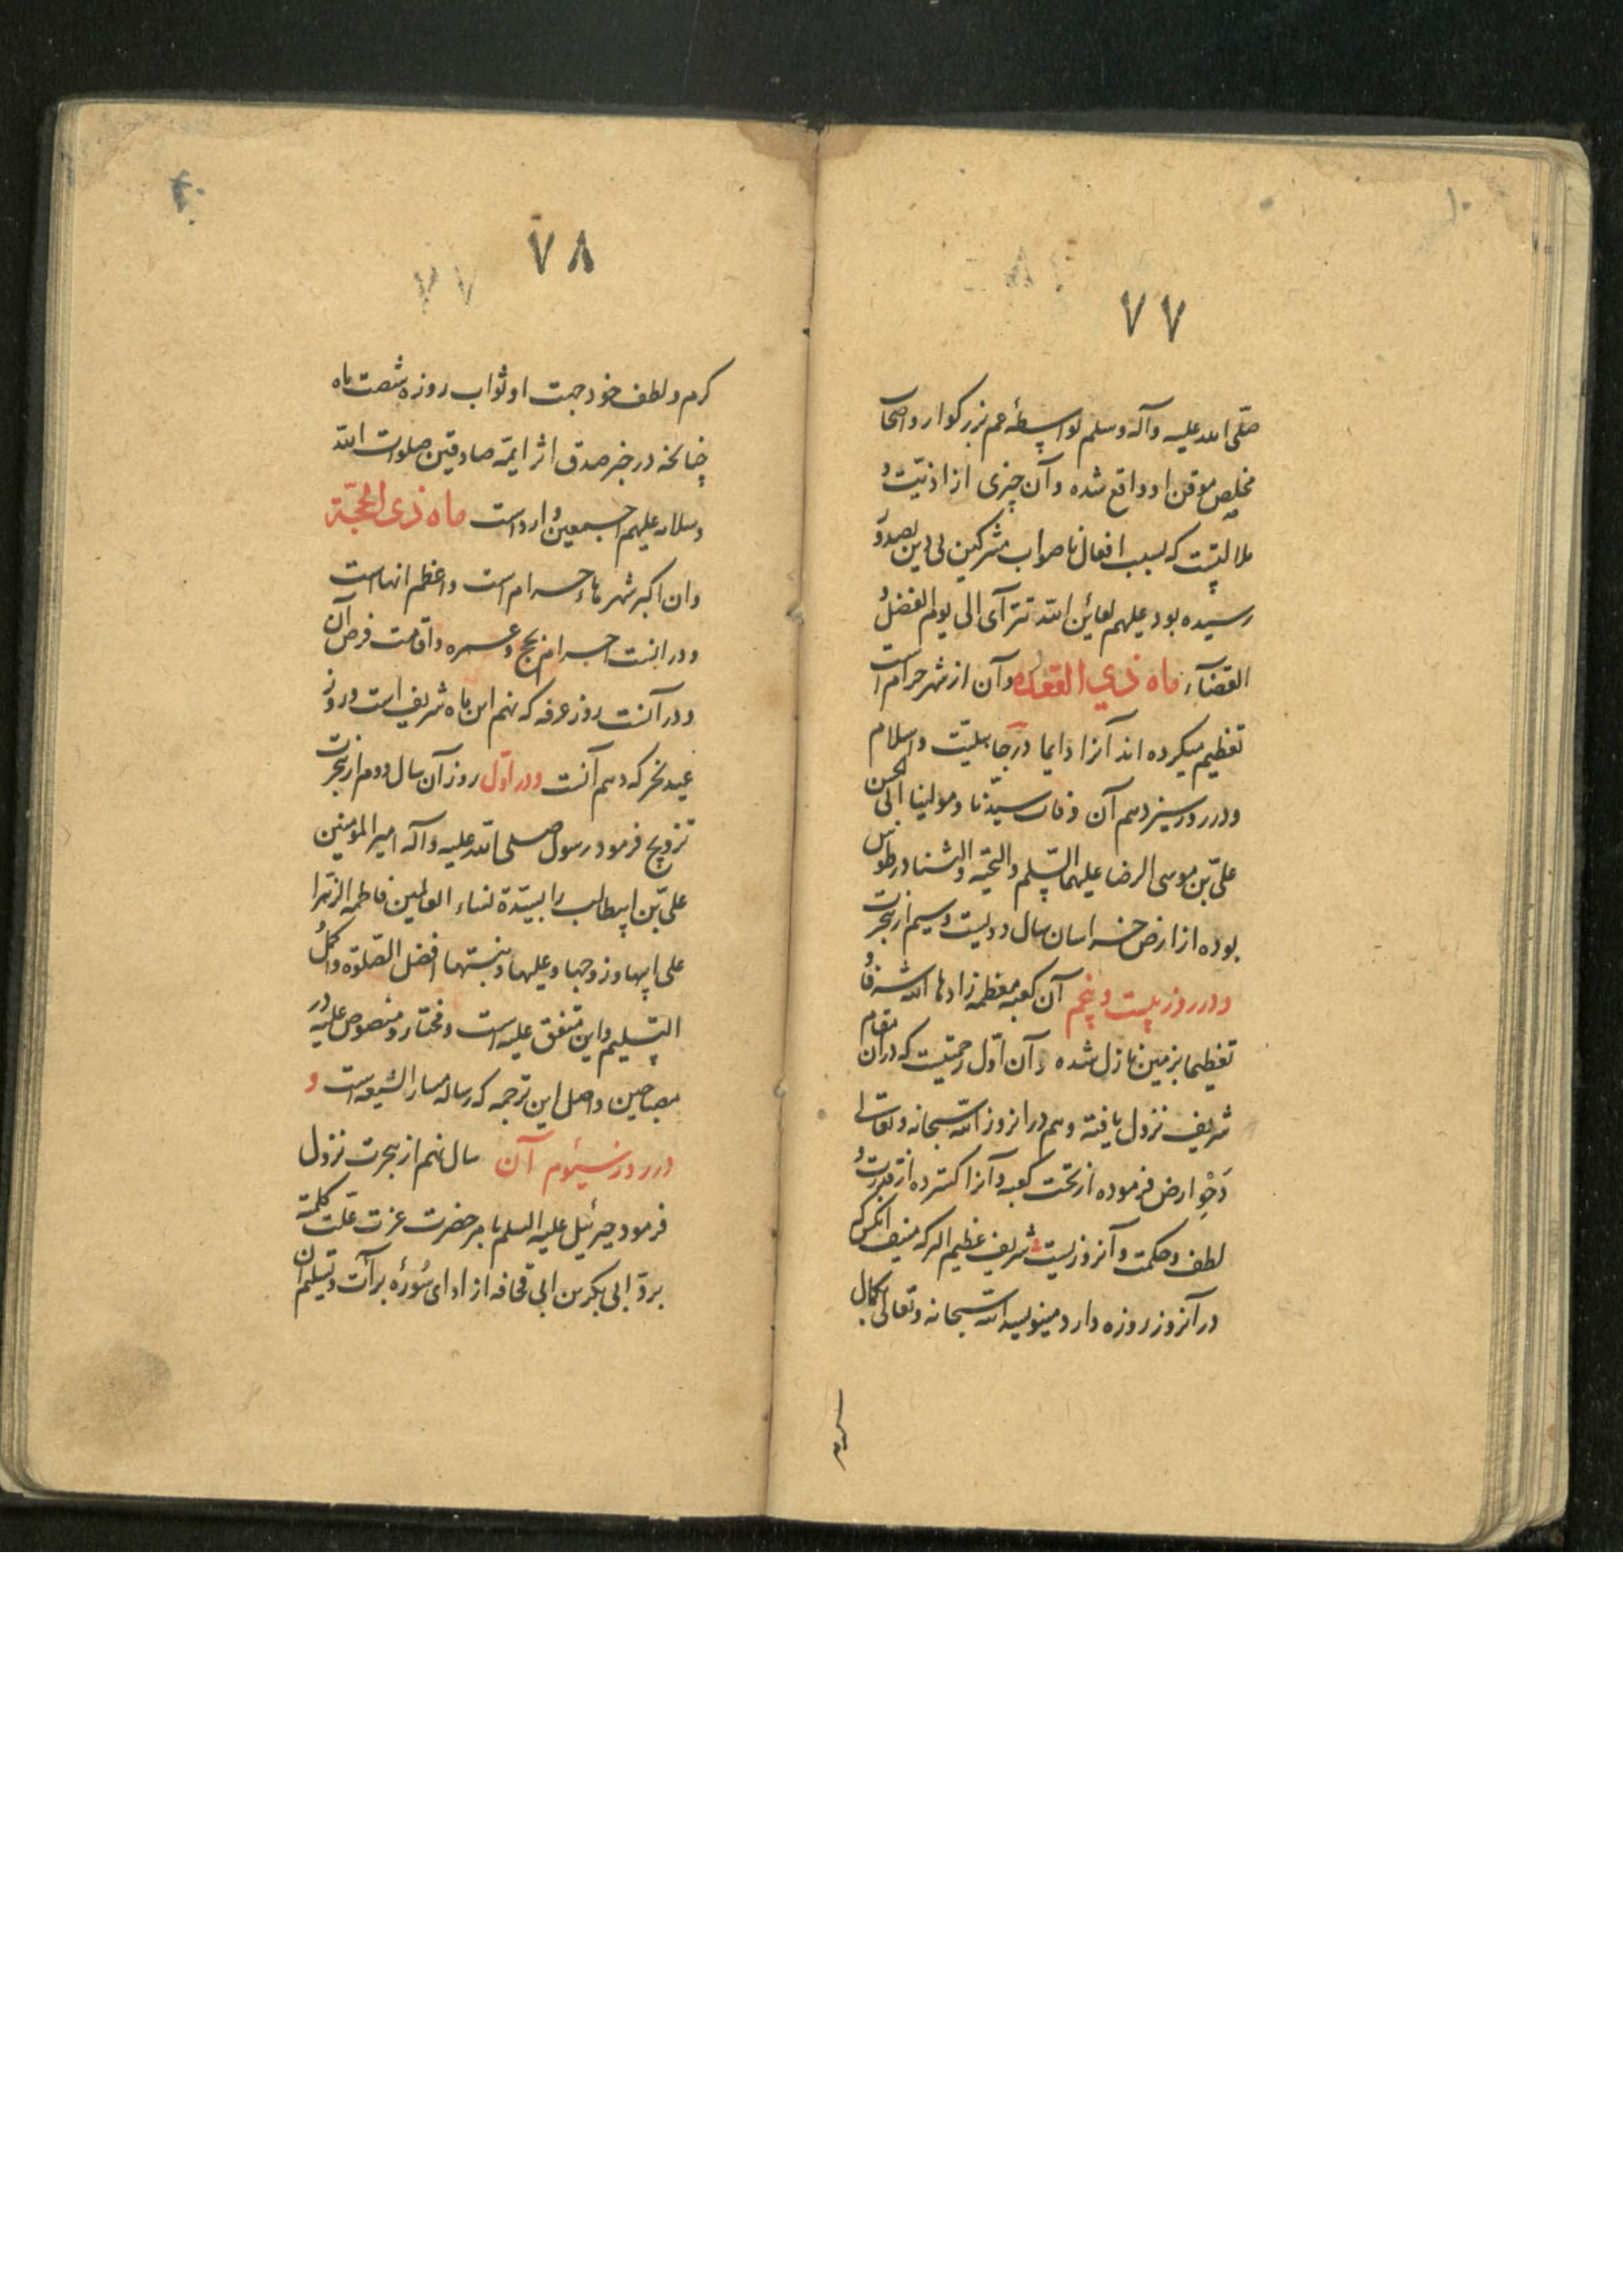 ٧٧
صلّی الله علیه وآله وسلم بواسطهٔ عم بزرکوار واصحاب
مخلص موقن او واقع شده وآن چیزی از اذیّت و
ملالتیست که بسبب افعال ناصواب مشرکین بی دین بصدور
رسیده بود علیهم لعاین الله تترآی الی یوم الفضل و
القضآء ماه ذي القعده وآن از شهر حرام است
تعظیم میکرده اند آنرا دایما در جاهلیت و اسلام
ودر روز سیزدهم آن وفات سیّدنا ومولینا ابی الحسن
علیّ بن موسی الرضا علیهما السّلم والتحیّه والثنا در طوس
بوده از ارض خراسان سال دویست وسیم از هجرت
ودر روز بیست وپنجم آن کعبه معظمه زادها الله شرفا و
تعظیما بزمین نازل شده وآن اوّل رحمتیست که در آن مقام
شریف نزول یافته وهم در انروز الله سبحانه وتعالی
دَحْوِ ارض فرموده از تحت کعبه وآنرا کسترده از قدرت و
لطف وحکمت وآنروزیست شریف عظیم البرکه منیف انکس که
در آنروز روزه دارد مینویسد الله سبحانه وتعالی بکمال
٧٨
کرم ولطف خود جهت او ثواب روزه شصت ماه
چنانچه در خبر صدق اثر ایمّه صادقین صلوات الله
وسلامه علیهم اجمعین وارد است ماه ذی الحجّة
وان اکبر شهرهاء حرام است واعظم انهاست
ودر انست احرام بحج وعمره واقامت فرض آن
ودر آنست روز عرفه که نهم این ماه شریف است وروز
عید نحر که دهم آنست ودر اوّل روز آن سال دوم از هجرت
تزویج فرمود رسول صلی الله علیه وآله امیر المؤمنین
علیّ بن ابیطالب را بسیّدة نساء العالمین فاطمه الزهرا
علی ابیها وزوجها وعلیها وبنیتهما افضل الصّلوة واکمل
التّسلیم واین متفق علیه است ومختار ومنصوص علیه در
مصباحین واصل این ترجمه که رساله مسار الشیعه است و
در روز سیّوم آن سال نهم از هجرت نزول
فرمود جبرئیل علیه السلم بامر حضرت عزت علّت کلمته
بردّ ابی بکر بن ابی قحافه از ادای سُورهٔ برآئت وتسلیم ان